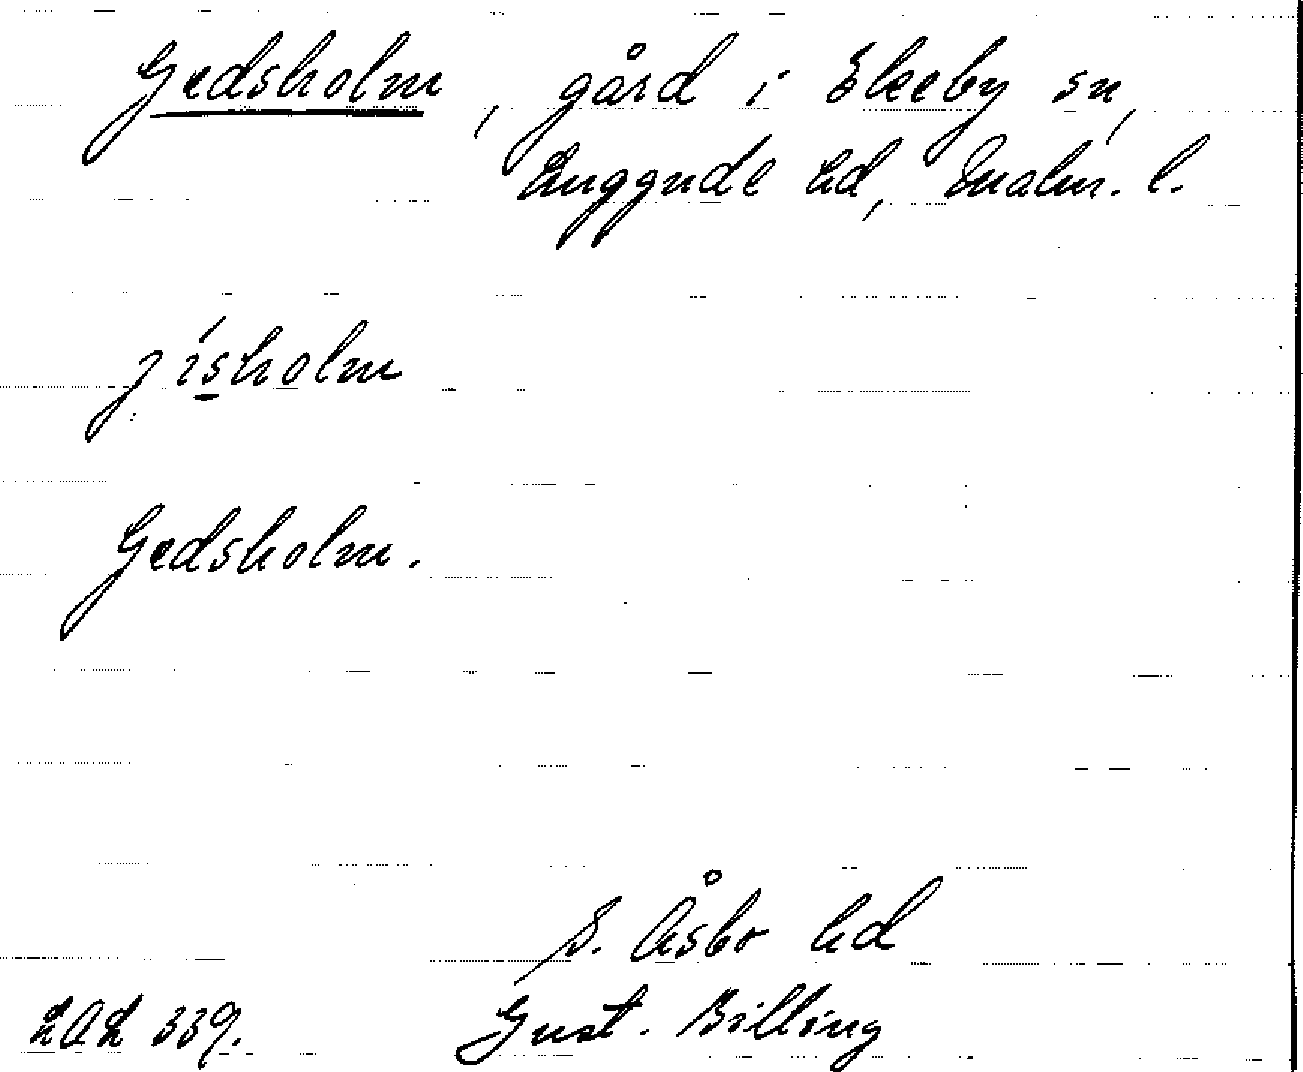 Gedsholm, gård i Ekeby sn,
Luggude hd, Malm. l.
jísholm
Gedsholm.
S. Åsbo hd
LAL 339. Gust. Billing